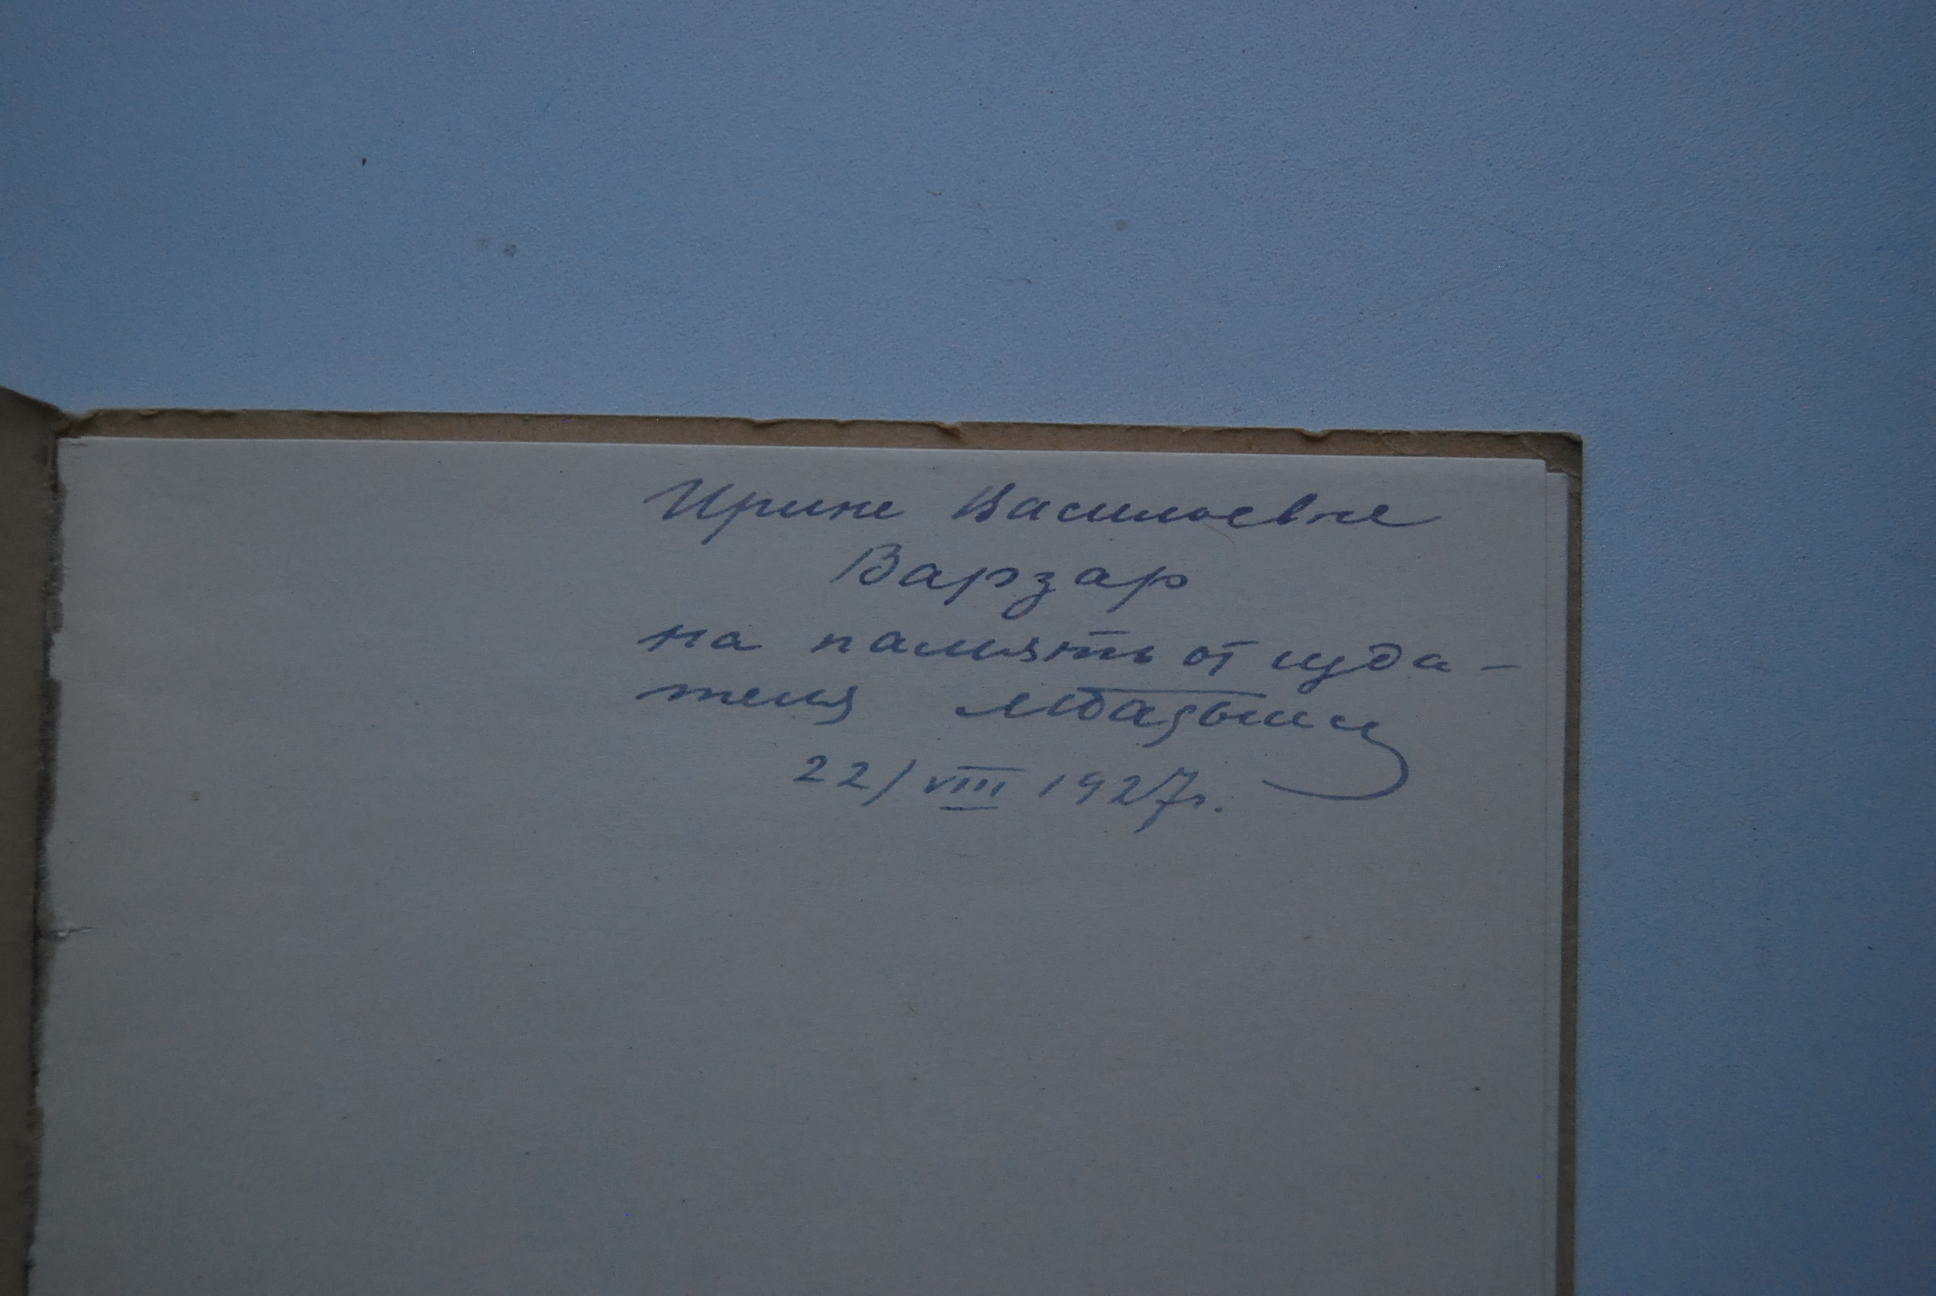 Ирине Васильевне
Варзар
на память от изда-
теля МБазыкин
22/VIII 1927г.